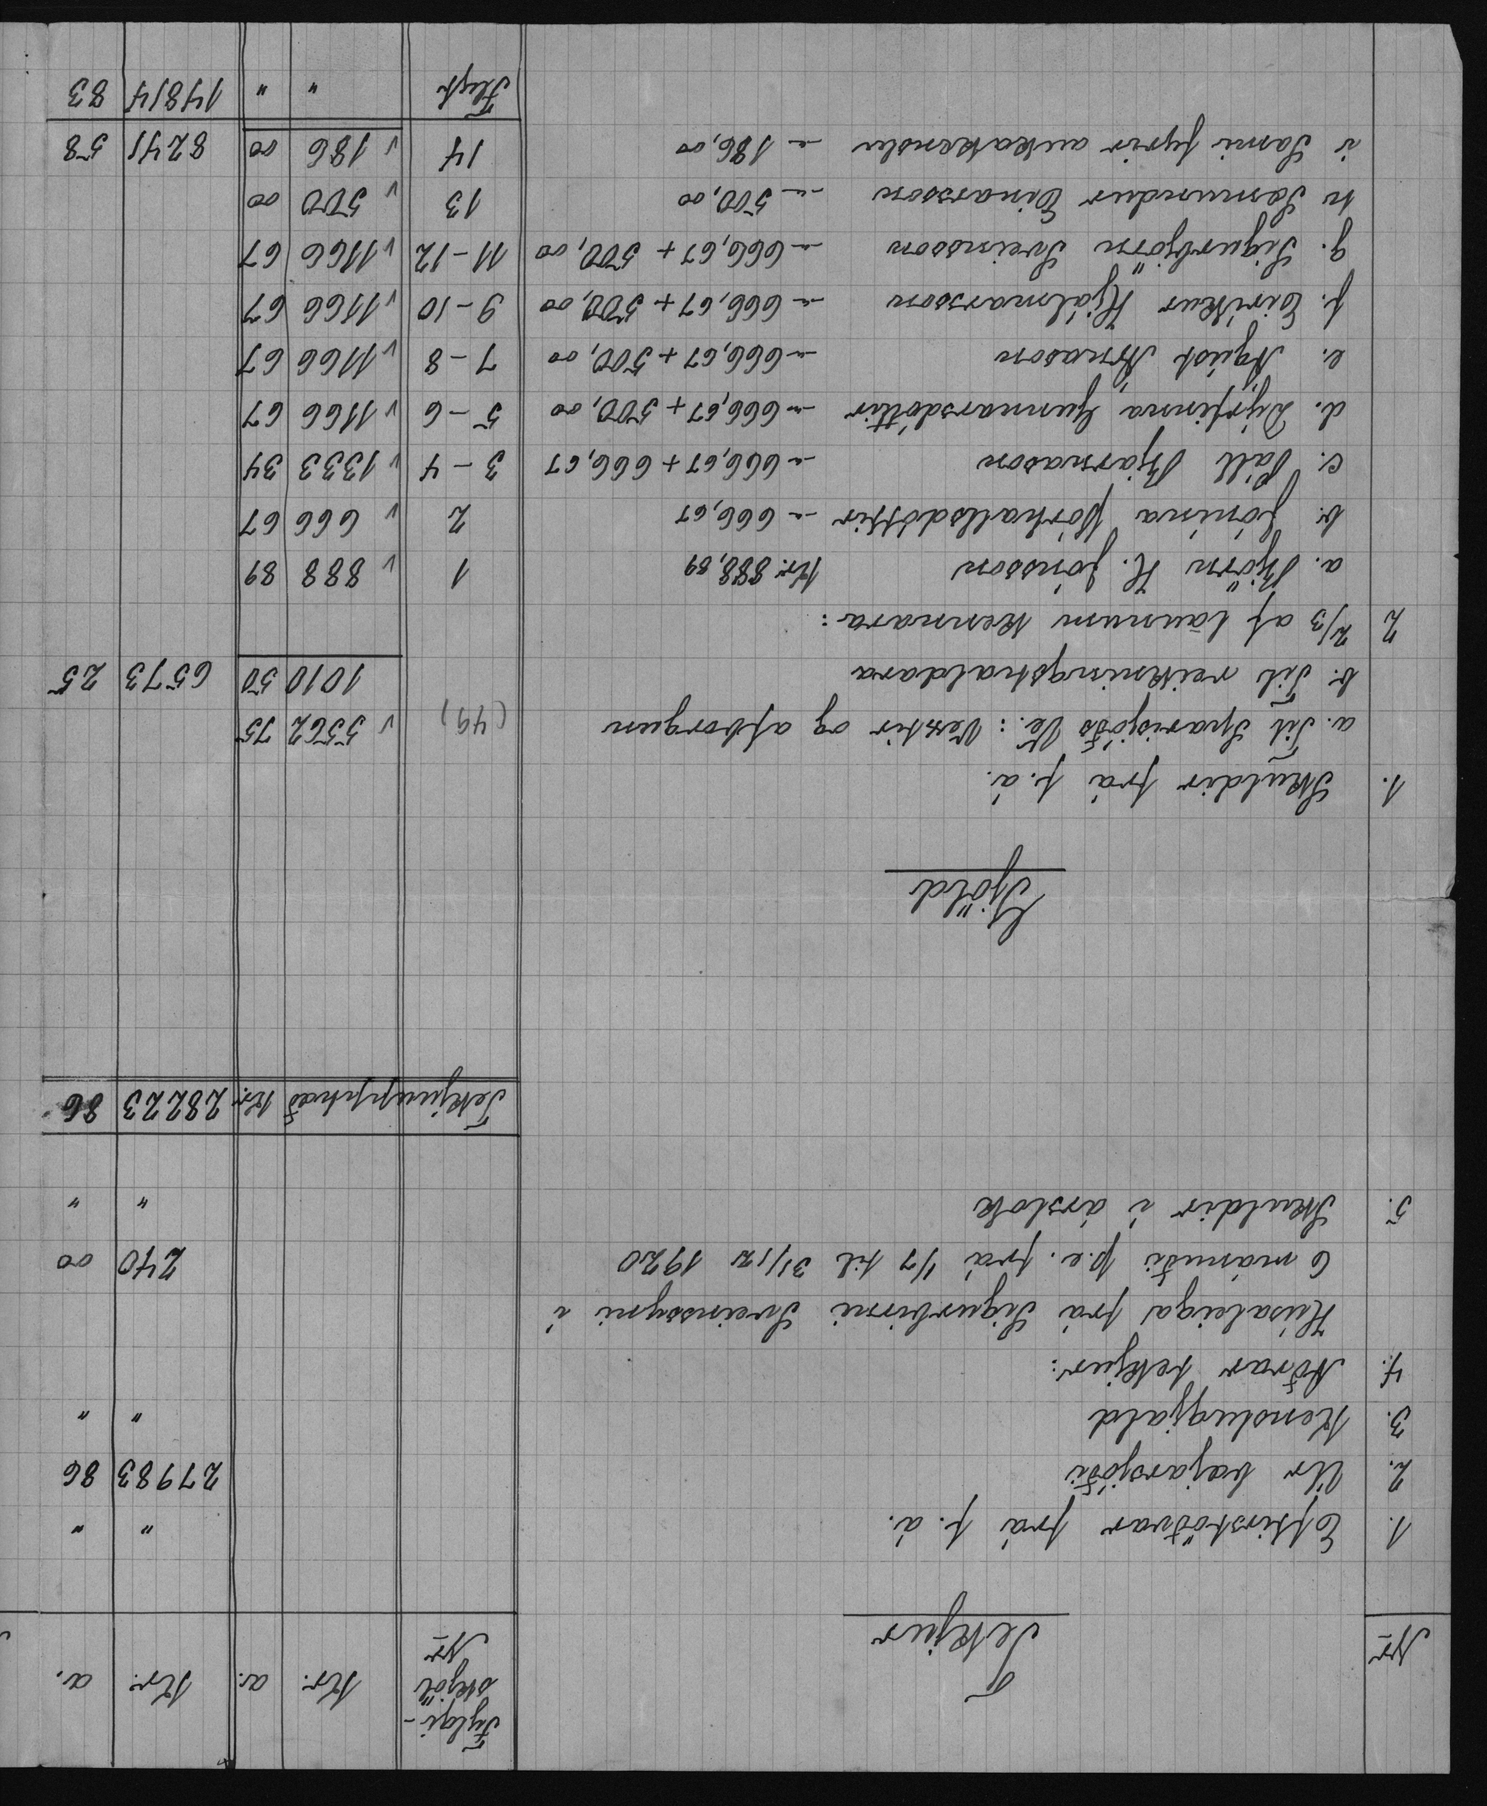 Nr. Tekjur Fylgi-skjöl Nr. Kr. a. Kr. a.
1. Eftirstöðvar frá f. á. " "
2. Úr bæjarsjóði 27983 86
3. Kenslugjald " "
4. Aðrar tekjur:
Húsaleiga frá Sigurbirni Sveinssyni í
6 mánuði þ.e. frá 1/7 til 31/12 1920 240 00
5. Skuldir í árslok " "
Tekjuupphæð Kr. 28223 86
Gjöld
1. Skuldir frá f. á.
a. Til Sparisjóðs Ve.: Vextir og afborgun (49) v 5562 75
b. Til reikningshaldara 1010 50 6573 25
2 2/3 af launum kennara:
a. Björn H. Jónsson Kr. 888,89 1 v 888 89
b. Jónína Þórhallsdóttir -"- 666,67 2 v 666 67
c. Páll Bjarnason -"- 666,67 + 666,67 3-4 v 1333 34
d. Dýrfinna Gunnarsdóttir -"- 666,67 + 500,00 5-6 v 1166 67
e. Ágúst Árnason -"- 666,67 + 500,00 7-8 v 1166 67
f. Eiríkur Hjálmarsson -"- 666,67 + 500,00 9-10 v 1166 67
g. Sigurbjörn Sveinsson -"- 666,67 + 500,00 11-12 v 1166 67
h Sæmundur Einarsson -"- 500,00 13 v 500 00
i Sami fyrir aukakenslu -"- 186,00 14 v 186 00 8241 58
Flyt " " 14814 83